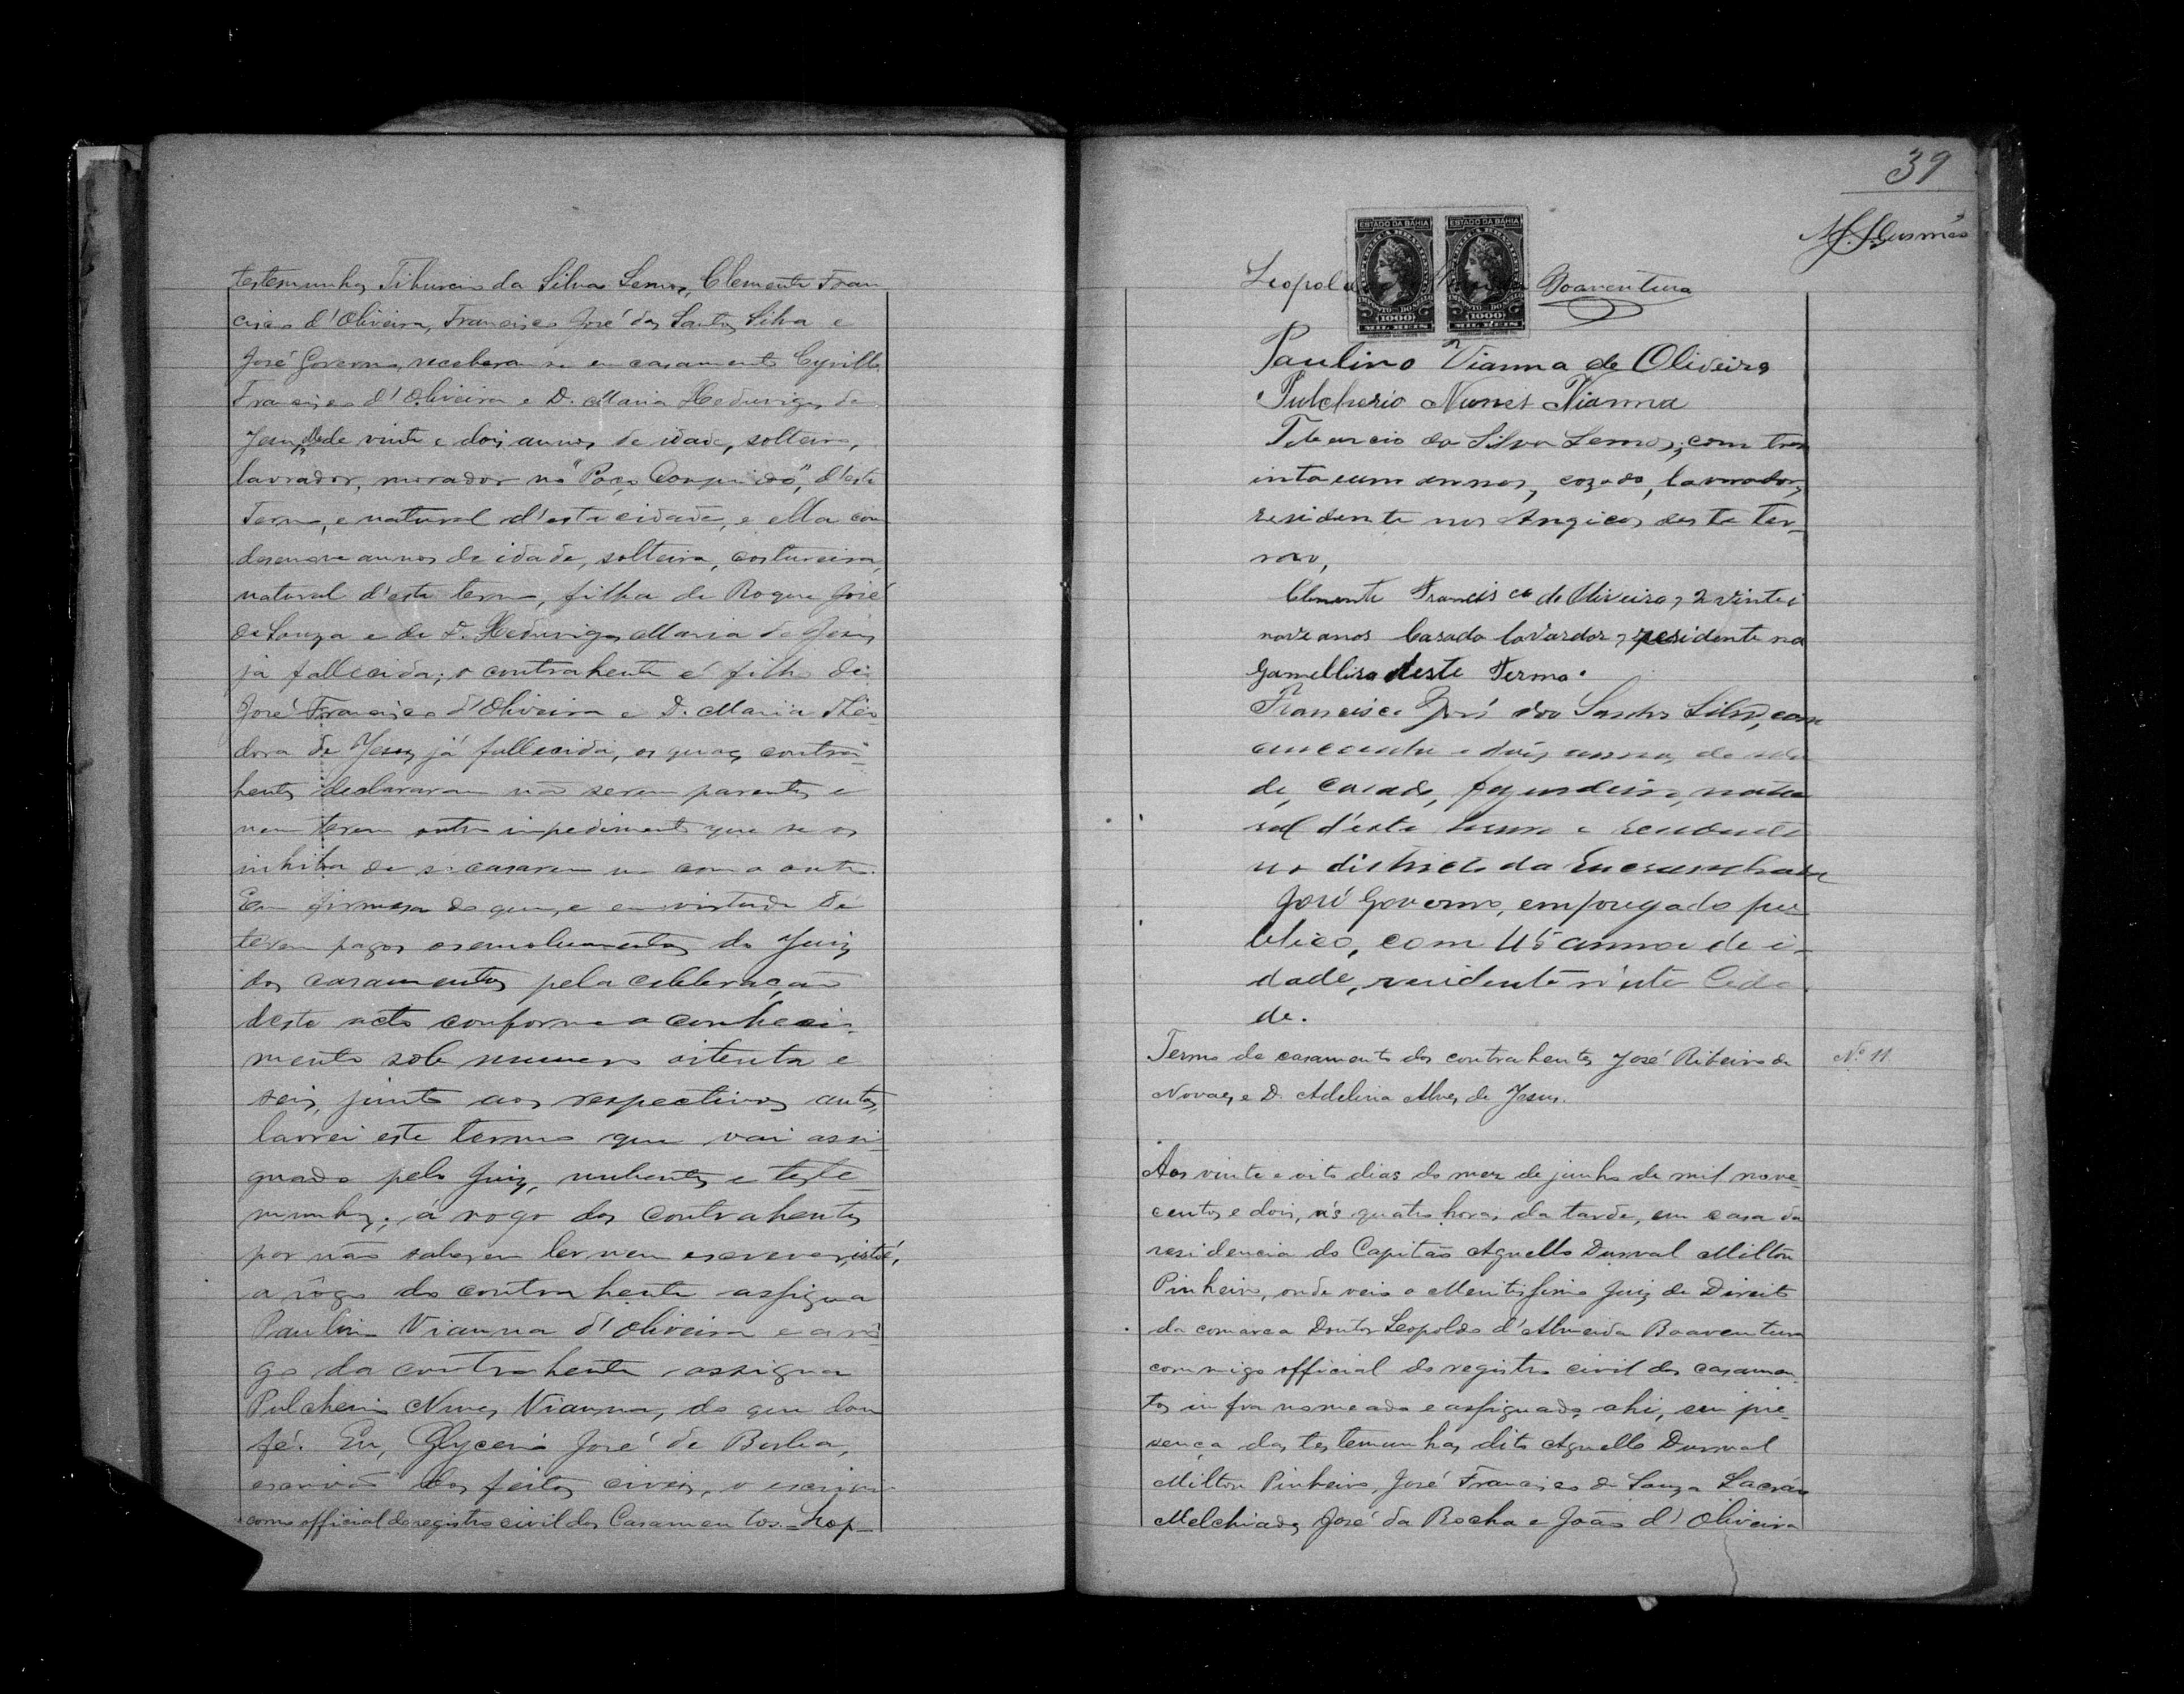 testemunhas Tiburcio da Silva Lemos, Clemente Fran
cisco d'Oliveira, Francisco José dos Santos Silva e
José Governo, receberam se em casamento Cyrillo
Francisco d'Oliveira e D. Maria Heduviges de
Jesus, elle de vinte e dois annos de idade, solteiro,
lavrador, morador no "Poço Comprido", d'este
Termo, e natural d'esta cidade, e ella com
desenove annos de idade, solteira, costureira,
natural d'este termo, filha de Roque José
de Souza e de D. Heduviges Maria de Jesus,
já fallecida; o contrahente é filho de
José Francisco d'Oliveira e D. Maria Theo
dora de Jesus já fallecida, os quaes contra-
hentes declararam não serem parentes e
nem terem outro impedimento que se os
inhiba de se casarem um com o outro.
Em firmesa do que, e em virtude de
terem pagos os emolumentos do Juiz
dos casamentos pela celebração
deste acto conforme o conheci-
mento sob numero oitenta e
seis, junto aos respectivos autos,
lavrei este termo que vai assi
gnado pelo Juiz, nubentes e teste-
munhas; á rogo dos contrahentes
por não saberem ler nem escrever, isto é,
a rôgo do contrahente assigna
Paulino Vianna d'Oliveira e a ro
go da contrahente assigna
Pulcherio Nunes Vianna, do que dou
fé. Eu, Glycerio José de Borba,
escrivão dos feitos civeis, o escrivi
como official do registro civil dos Casamentos. Leop-
39
M. S. Gusmão
ESTADO DA BAHIA
ESTADO DA BAHIA
1000
MIL REIS
1000
MIL REIS
Leopoldo Boaventura
Paulino Vianna de Oliveira
Pulcherio Nunes Vianna
Tiburcio da Silva Lemos, com trin
inta e um annos, cazado, lavrador,
residente nos Angicos deste ter-
mo,
Clemente Francisco de Oliveira, 2 vinte i
nove anos Casado lavardor, residente na
Gamellira deste Termo.
Francisco José dos Santos Silva, com
cincoenta e dois annos de ida
de, casado, fazendeiro, natu
ral d'este termo e residente
no districto da Encruzilhada
José Governo, empregado pu
blico, com 45 annos de i-
dade, residente n'esta Cida
de.
Termo de casamento dos contrahentes José Ribeiro de
Novaes e D. Adelina Alves de Jesus.
Nº 11
Aos vinte e oito dias do mez de junho de mil nove-
centos e dois, ás quatro horas da tarde, em casa da
residencia do Capitão Agnello Durval Milton
Pinheiro, onde veio o Meritissimo Juiz de Direito
da comarca Doutor Leopoldo d'Almeida Boaventura
commigo official do registro civil dos casamen-
tos infra nomeado e assignado, ahi, em pre-
sença das testemunhas dito Agnello Durval
Milton Pinheiro, José Francisco de Souza
Melchiades José da Rocha e João d'Oliveira